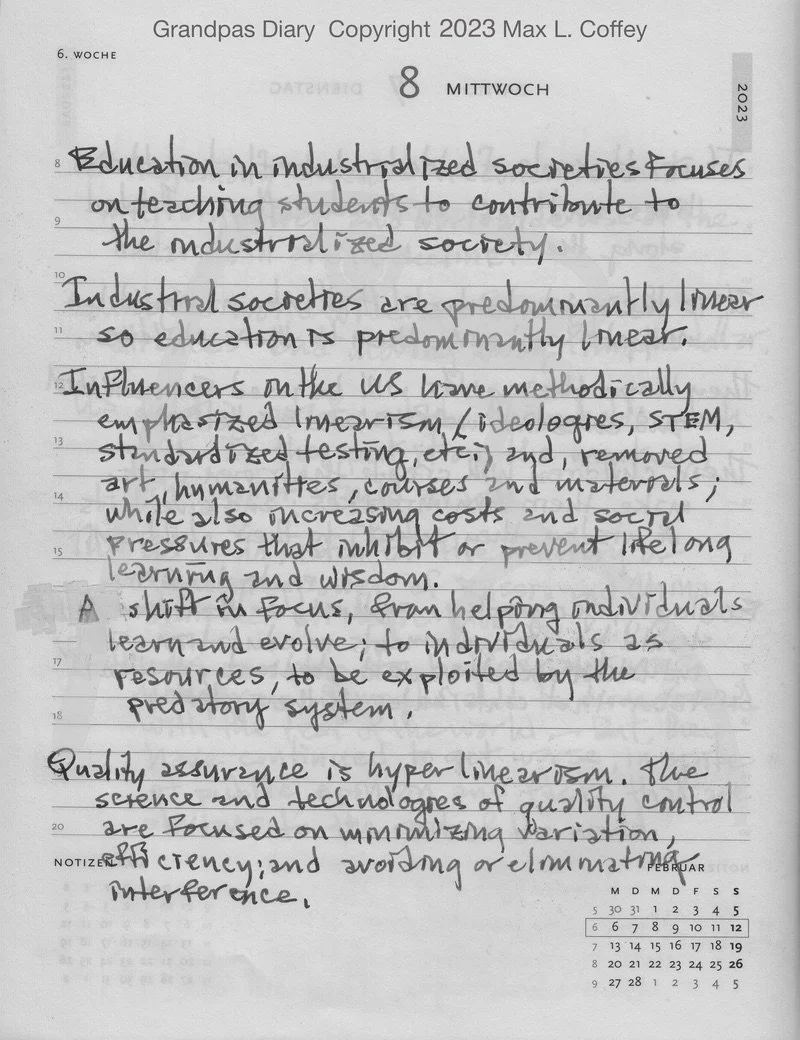 Grandpas Diary Copyright 2023 Max L. Coffey
6. WOCHE
8 MITTWOCH
2023
8 Education in industrialized societies Focuses
on teaching students to contribute to
9 the industrialized society.
10 Industrial societies are predominantly linear
11 so education is predominantly linear.
12 Influencers on the US have methodically
emphasized linearism/ideologies, STEM,
13 standardized testing, etc.; and, removed
art, humanities, courses and materials;
14 while also increasing costs and social
15 pressures that inhibit or prevent lifelong
learning and wisdom.
A shift in focus, from helping individuals
learn and evolve; to individuals as
17 resources, to be exploited by the
predatory system.
18
Quality assurance is hyper linearism. The
science and technologies of quality control
20 are focused on minimizing variation,
NOTIZEN efficiency; and avoiding or eliminating
interference.
FEBRUAR
M D M D F S S
5 30 31 1 2 3 4 5
6 6 7 8 9 10 11 12
7 13 14 15 16 17 18 19
8 20 21 22 23 24 25 26
9 27 28 1 2 3 4 5